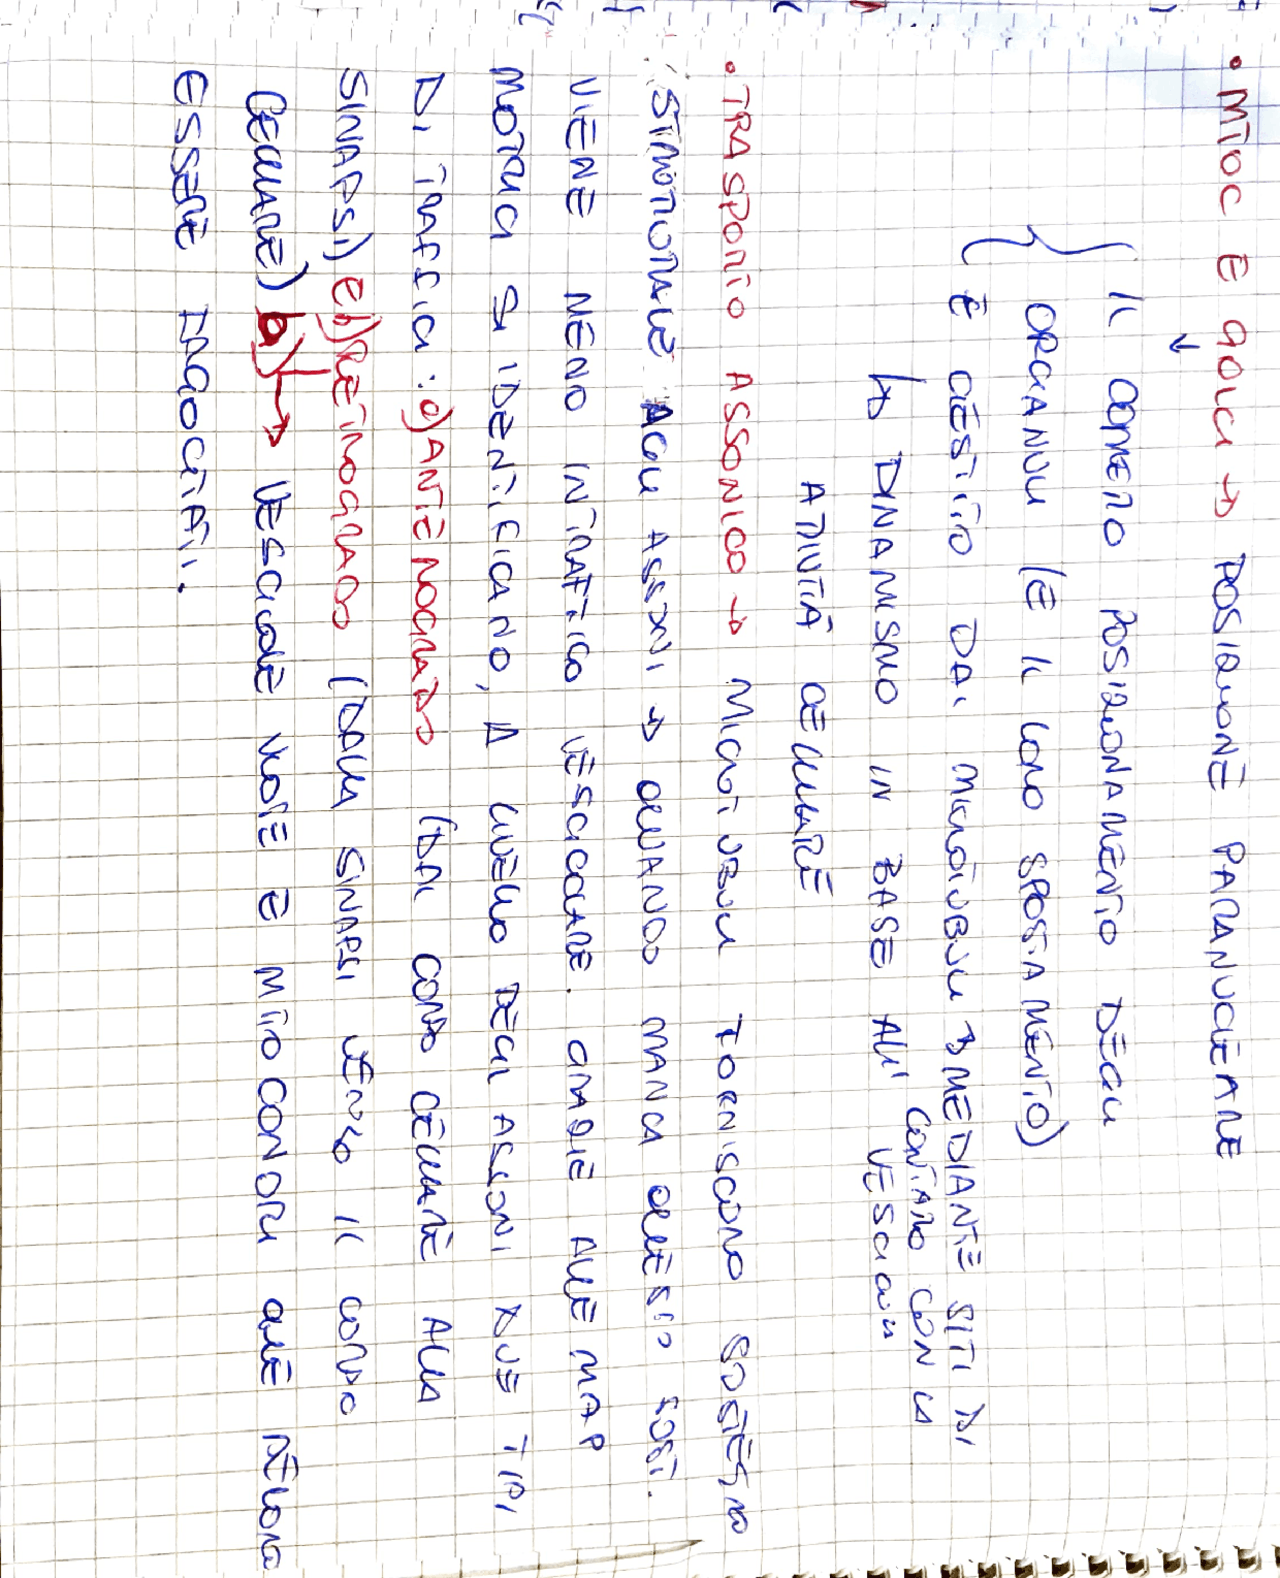 • MTOC E GOLGI → POSIZIONE PARANUCLEARE
↓
IL CORRETTO POSIZIONAMENTO DEGLI
ORGANULI (E IL LORO SPOSTAMENTO)
È GESTITO DAI MICROTUBULI → MEDIANTE SITI DI
CONTATTO CON LA
↳ DINAMISMO IN BASE ALL' VESCICOLA
ATTIVITÀ CELLULARE
• TRASPORTO ASSONICO → MICROTUBULI FORNISCONO SOSTEGNO
STRUTTURALE AGLI ASSONI → QUANDO MANCA QUESTO SOST.
VIENE MENO IN TRAFFICO VESCICOLARE. GRAZIE ALLE MAP
MOTRICI SI IDENTIFICANO, A LIVELLO DEGLI ASSONI DUE TIPI
DI TRAFFICI: a) ANTEROGRADO (DAL CORPO CELLULARE ALLA
SINAPSI) E b) RETROGRADO (DALLA SINAPSI VERSO IL CORPO
CELLULARE) b) → VESCICOLE VUOTE E MITOCONDRI CHE DEVONO
ESSERE FAGOCITATI.